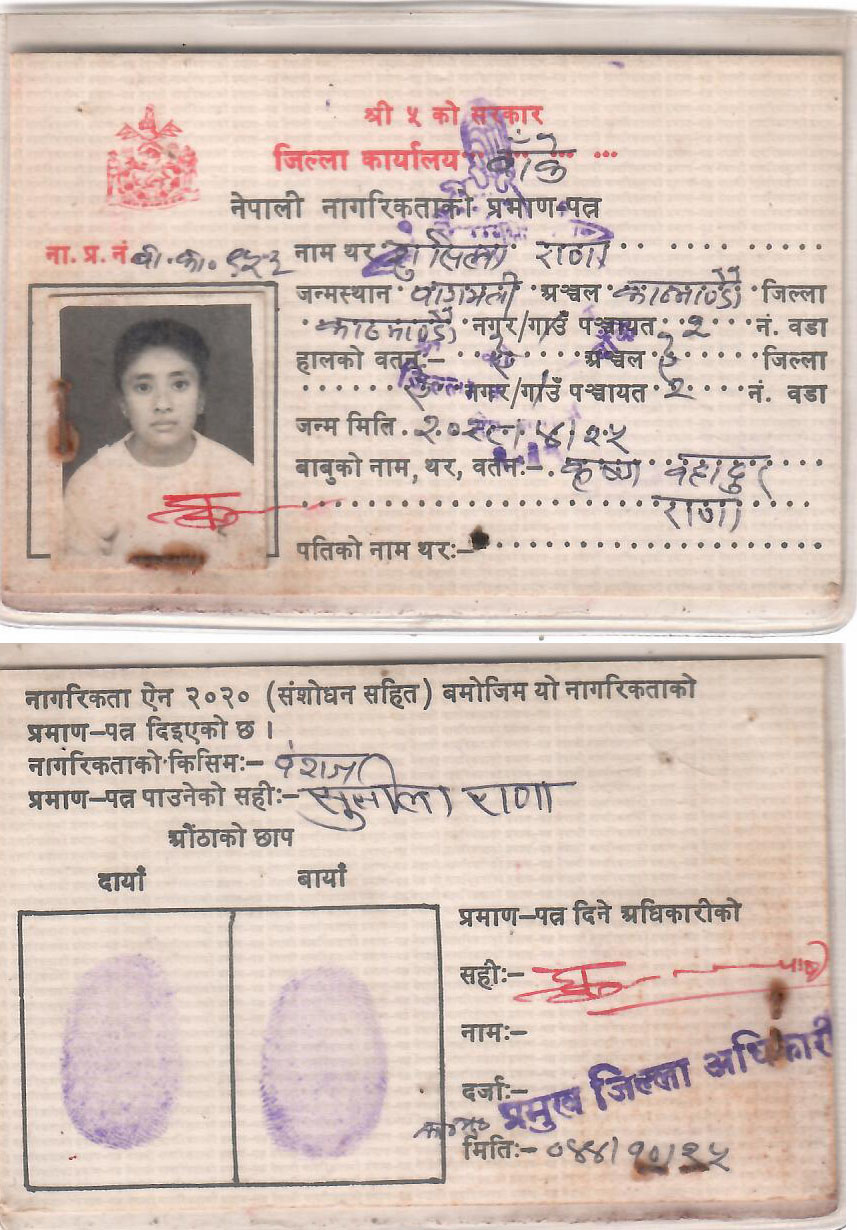 श्री ५ को सरकार
जिल्ला कार्यालय बाँके
नेपाली नागरिकताको प्रमाण-पत्र
ना. प्र. नं. बी. का.
नाम थर सुसिला राणा
जन्मस्थान बागमती अञ्चल काठमाण्डौ जिल्ला
काठमाण्डौ नगर/गाउँ पञ्चायत २ नं. वडा
हालको वतन:- ऐ अञ्चल ऐ जिल्ला
नगर/गाउँ पञ्चायत २ नं. वडा
जन्म मिति ।४।२५
बाबुको नाम, थर, वतन:- कृष्ण बहादुर
राणा
पतिको नाम थर:-
नागरिकता ऐन २०२० (संशोधन सहित) बमोजिम यो नागरिकताको
प्रमाण-पत्र दिइएको छ ।
नागरिकताको किसिम:- वंशज
प्रमाण-पत्र पाउनेको सही:- सुसीला राणा
औंठाको छाप
दायाँ बायाँ
प्रमाण-पत्र दिने अधिकारीको
सही:-
नाम:-
दर्जा:- प्रमुख जिल्ला अधिकारी
मिति:- ०४४।१०।२५